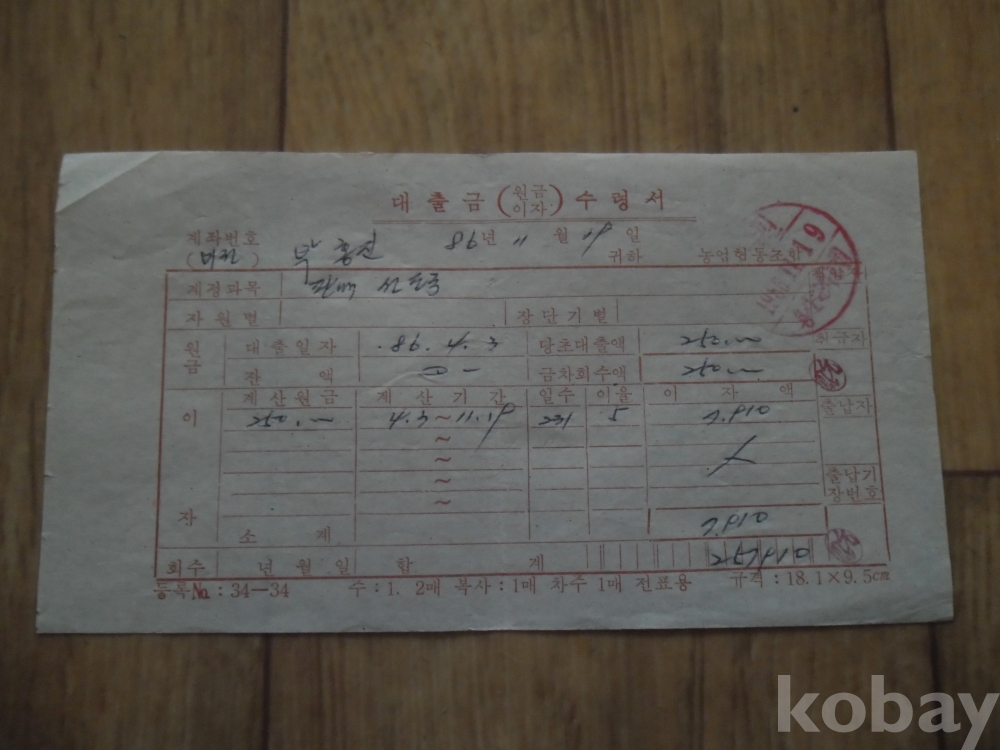 대출금 (원금 이자) 수령서
계좌번호 86년 11월 19일
(버전) 박홍진 귀하 농업협동조합
계정과목
자원별 장단기별
원금 대출일자 86.4.3 당초대출액 250.— 취급자
잔액 0- 금차회수액 250.—
이자 계산원금 계산기간 일수 이율 이자액 출납자
250.— 4.3~11.19 231 5 7.910
~
~
~
~ 출납기장번호
소계 7.910
회수 년월일 합계 257910
등록№:34—34 수:1. 2매 복사:1매 차수 1매 전표용 규격:18.1×9.5cm
kobay